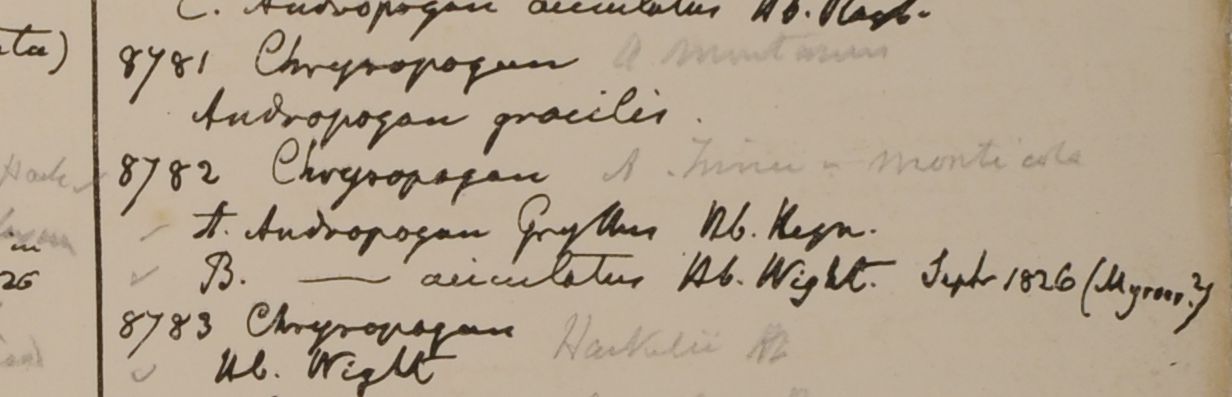 C. Andropogon aciculatus Hb. Roxb.
8781 Chrysopogon A montanus
Andropogon gracilis.
8782 Chrysopogon A. Trinii = monticola
A. Andropogon Gryllus Hb. Heyn.
B. — aciculatus Hb. Wight. Septr 1826 (Mysor.?)
8783 Chrysopogon Hackelii
Hb. Wight
ta)
Hack
26